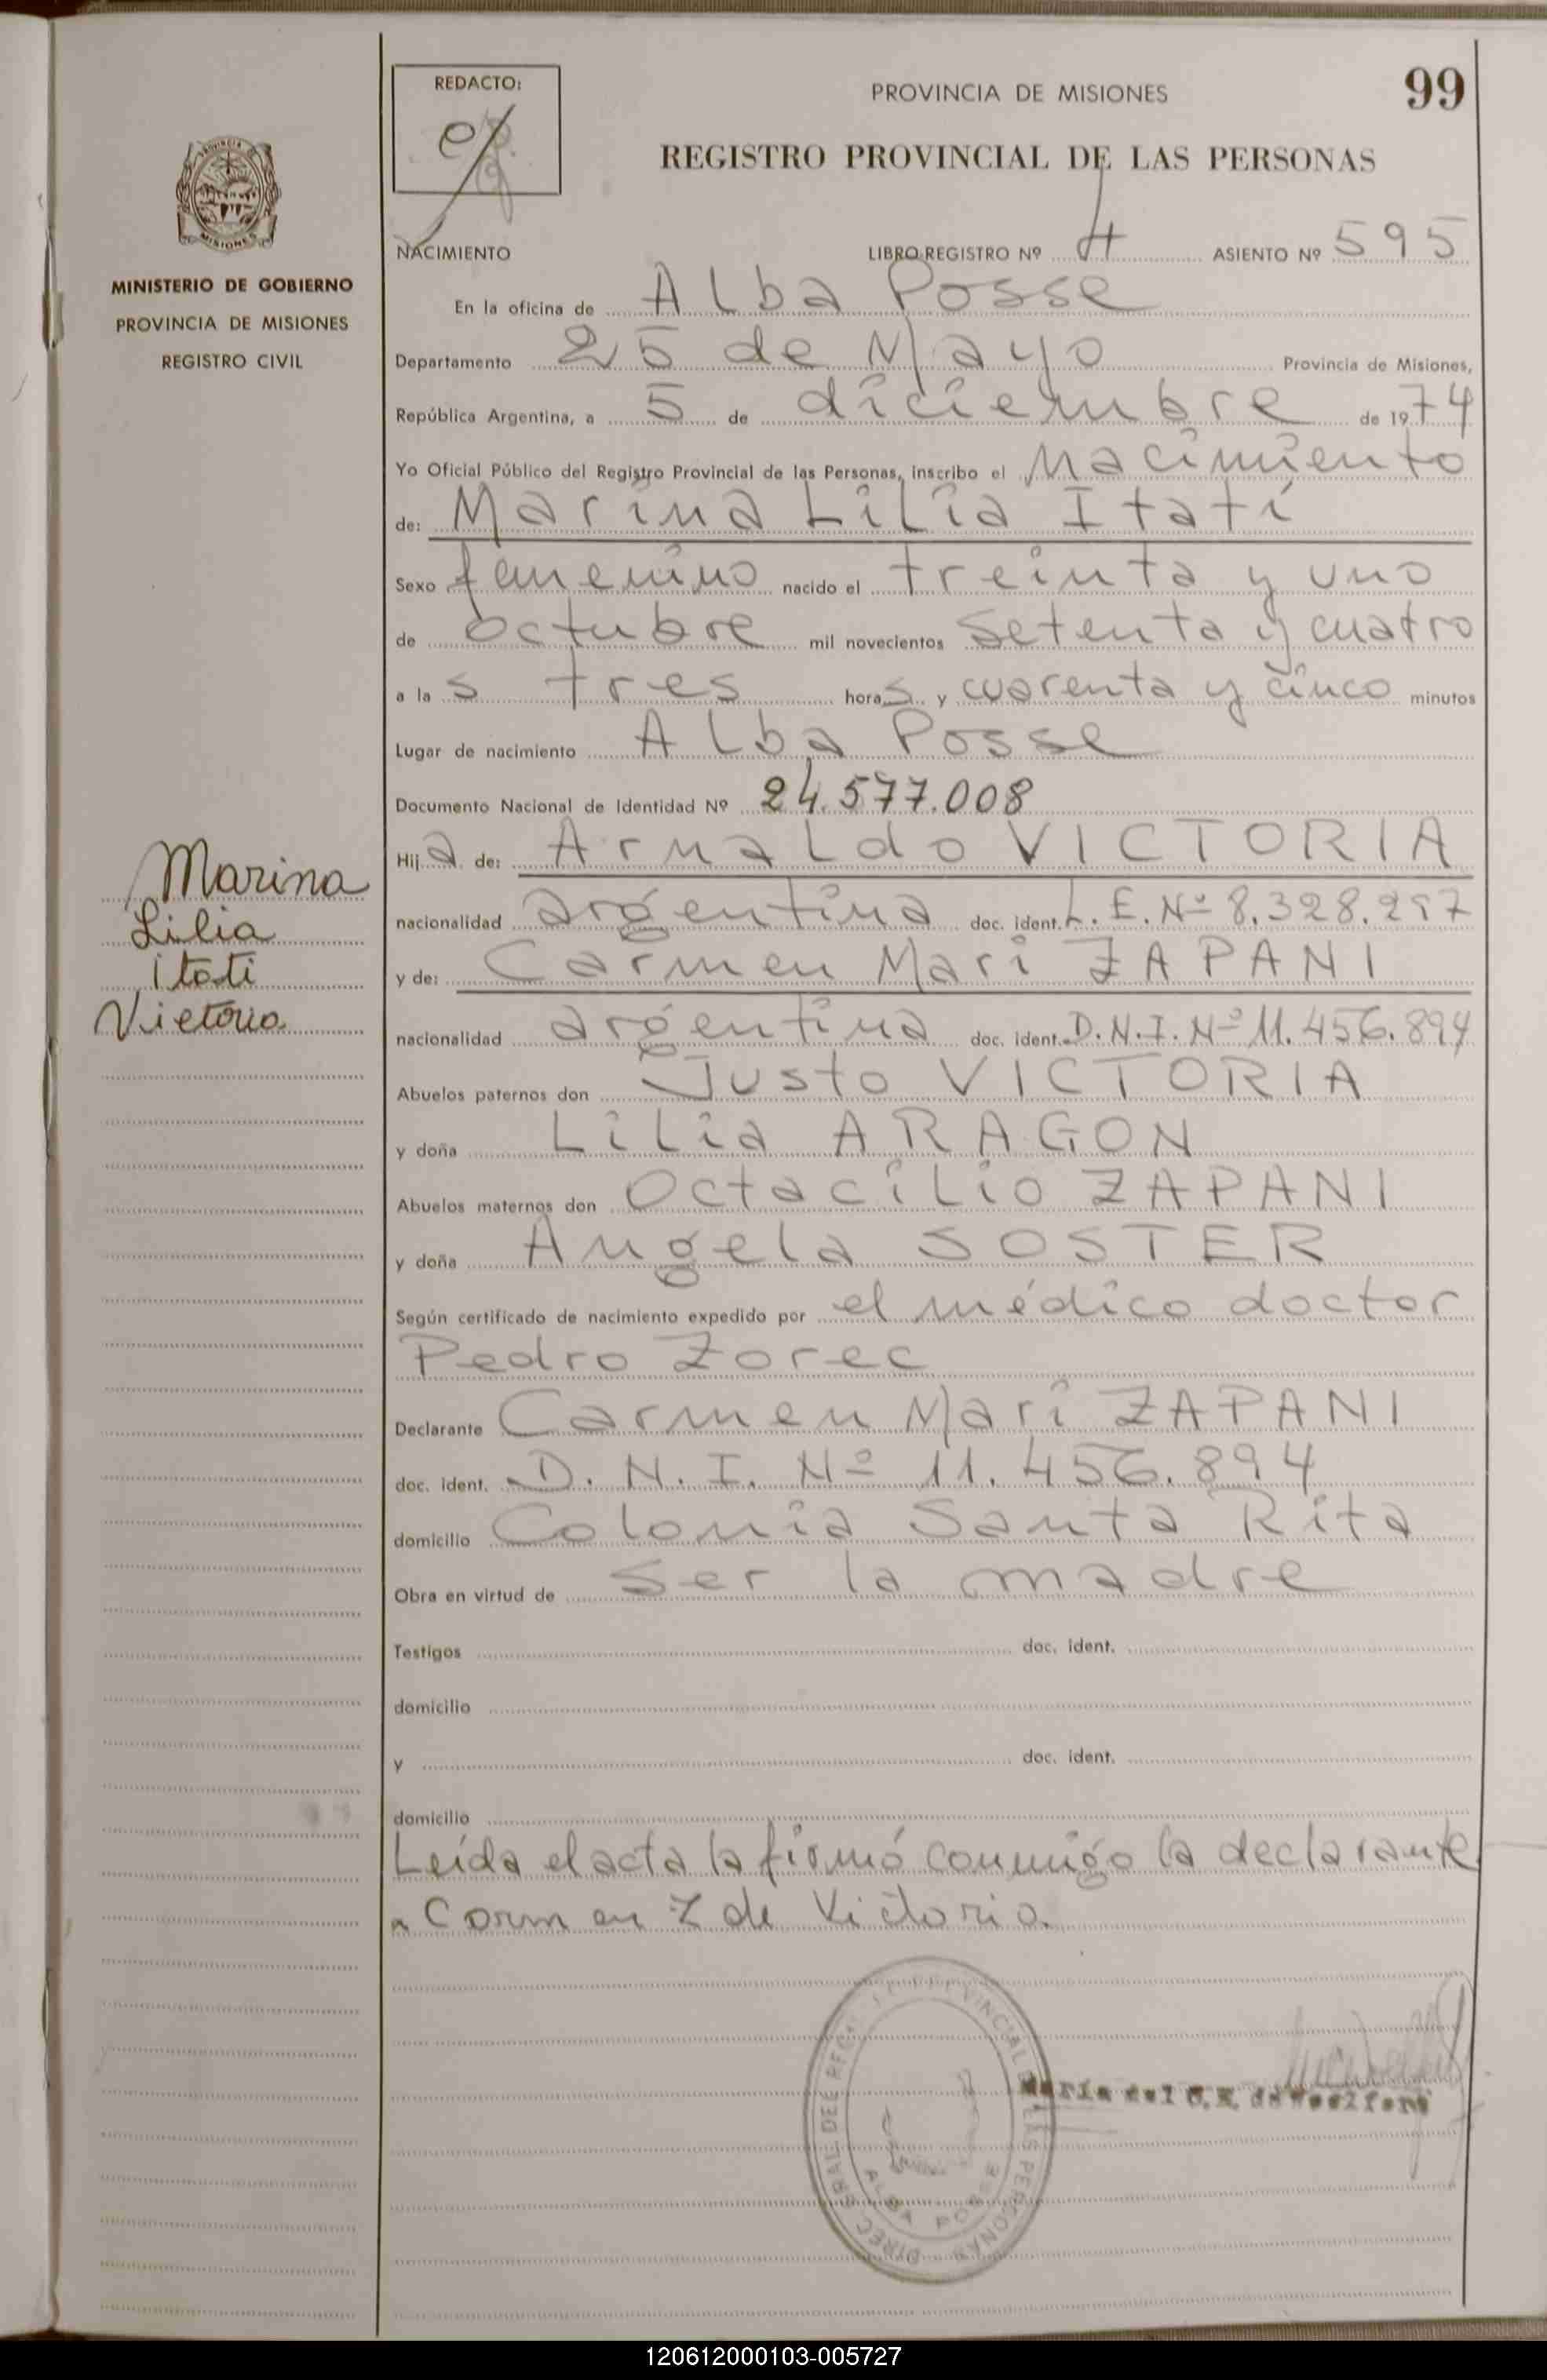 REDACTO:
PROVINCIA DE MISIONES
99
REGISTRO PROVINCIAL DE LAS PERSONAS
MISIONES
MINISTERIO DE GOBIERNO
PROVINCIA DE MISIONES
REGISTRO CIVIL
NACIMIENTO LIBRO REGISTRO Nº 4 ASIENTO Nº 595
En la oficina de Alba Posse
Departamento 25 de Mayo Provincia de Misiones,
República Argentina, a 5 de diciembre de 1974
Yo Oficial Público del Registro Provincial de las Personas, inscribo el nacimiento
de: Marina Lilia Itatí
Sexo femenino nacido el treinta y uno
de octubre mil novecientos setenta y cuatro
a las tres horas y cuarenta y cinco minutos
Lugar de nacimiento Alba Posse
Documento Nacional de Identidad Nº 24.577.008
Hija de: Arnaldo VICTORIA
nacionalidad argentina doc. ident. L.E.Nº 8.328.297
y de: Carmen Mari ZAPANI
nacionalidad argentina doc. ident. D.N.I.Nº 11.456.894
Marina
Lilia
itati
Victoria
Abuelos paternos don Justo VICTORIA
y doña Lilia ARAGON
Abuelos maternos don Octacilio ZAPANI
y doña Angela SOSTER
Según certificado de nacimiento expedido por el médico doctor
Pedro Zorec
Declarante Carmen Mari ZAPANI
doc. ident. D.N.I. Nº 11.456.894
domicilio Colonia Santa Rita
Obra en virtud de ser la madre
Testigos doc. ident.
domicilio
y doc. ident.
domicilio
Leída el acta la firmó conmigo la declarante
Carmen Z de Victoria.
ALBA POSSE
María del C. K. de
120612000103-005727